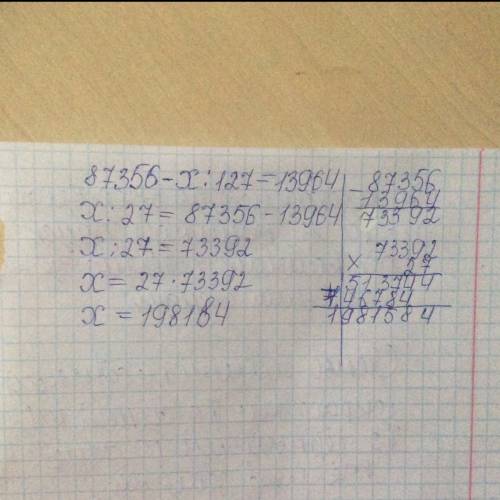 87356-x:127=13964
x:27=87356-13964
x:27=73392
x=27·73392
x=198184
-87356
13964
73392
73392
×27
513744
146784
1981584